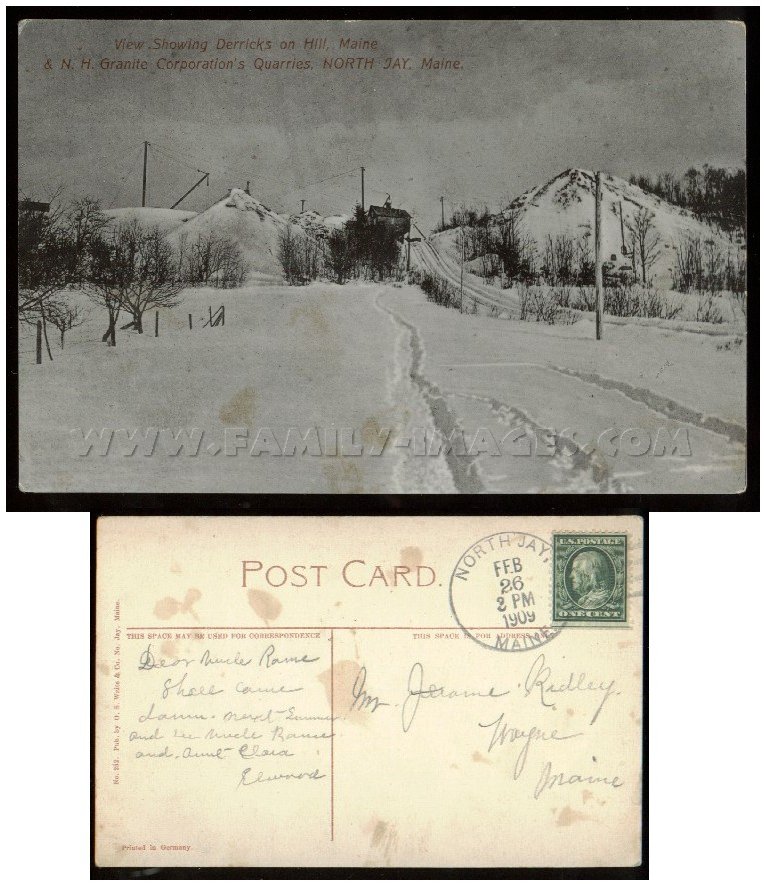 View Showing Derricks on Hill, Maine
& N. H. Granite Corporation's Quarries, NORTH JAY, Maine.
WWW.FAMILY-IMAGES.COM
POST CARD.
NORTH JAY,
FEB
26
2 PM
1909
MAINE
U.S. POSTAGE
ONE CENT
THIS SPACE MAY BE USED FOR CORRESPONDENCE
THIS SPACE IS FOR ADDRESS
Dear Uncle Rame
Shall come
down next Summer
and see Uncle Rame
and Aunt Clara
Elwood
Mr. Jerome Ridley.
Wayne
Maine
No. 252. Pub. by O. S. Waite & Co. No. Jay, Maine.
Printed in Germany